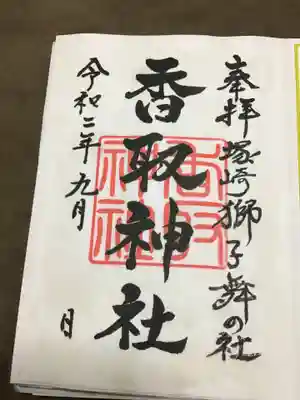 奉拝 塚崎獅子舞の社
香取神社
令和二年九月 日
香取神社